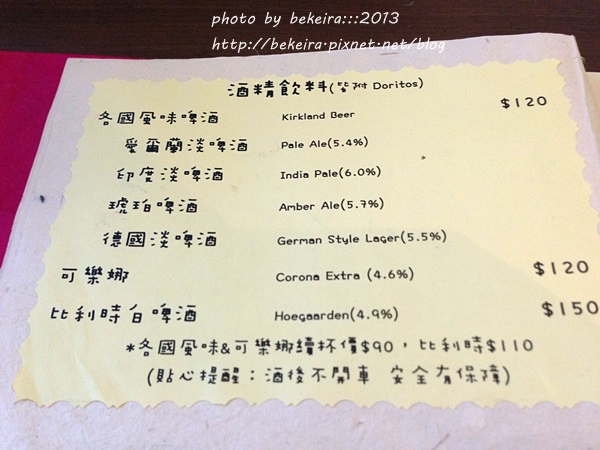 photo by bekeira:::2013
http://bekeira.pixnet.net/blog
酒精飲料(皆附 Doritos)
各國風味啤酒 Kirkland Beer $120
愛爾蘭淡啤酒 Pale Ale(5.4%)
印度淡啤酒 India Pale(6.0%)
琥珀啤酒 Amber Ale(5.7%)
德國淡啤酒 German Style Lager(5.5%)
可樂娜 Corona Extra (4.6%) $120
比利時白啤酒 Hoegaarden(4.9%) $150
*各國風味&可樂娜續杯價$90，比利時$110
(貼心提醒：酒後不開車 安全有保障)